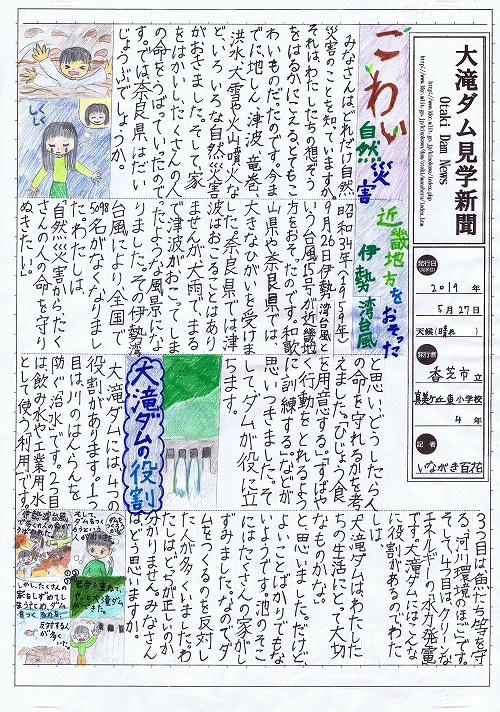 大滝ダム見学新聞
Otaki Dam News
発行日
(見学日)
2019年
5月27日
天候(晴れ)
発行者
香芝市立
真美ケ丘東小学校
4年
記者
いながき百花
こわい自然災害
みなさんは、どれだけ自然
災害のことを知っていますか。
それは、わたしたちの想ぞう
をはるかにこえるとてもこ
わいものだったのです。今ま
でに地しん、津波、竜巻、
洪水、大雪や火山噴火な
どいろいろな自然災害
がおきました。そして、家
をはかいし、たくさんの人
の命をうばっていったので
す。では奈良県はだい
じょうぶでしょうか。
近畿地方をおそった
伊勢湾台風
昭和34年(1959年)
9月26日伊勢湾台風と
いう台風15号が近畿地
方をおそったのです。和歌
山県や奈良県では、
大きなひがいを受けまし
た。奈良県では津
波はおこることはあり
ませんが、大雨で、まる
で津波がおこってしまっ
たような風景にな
りました。その伊勢湾
台風により、全国で
5098名がなくなりまし
た。わたしは、
「自然災害からたく
さんの人の命を守り
ぬきたい。」
と思い、どうしたら人
の命を守れるかを考
えました。「ひじょう食
を用意する。」「すばや
く行動をとれるよう
に訓練する。」などが
思いつきました。そ
して、ダムが役に立
ちます。
大滝ダムの役割
大滝ダムには、4つの
役割があります。1つ
目は、川のはんらんを
防ぐ「治水」です。2つ目
は、飲み水や工業用水
として使う「利用」です。
3つ目は、魚たち等を守
る、「河川環境のほご」です。
そして4つ目は、クリーンな
エネルギーの「水力発電」
です。大滝ダムにはこんな
に役割があるのでわた
しは、
大滝ダムは、わたした
ちの生活にとって大切
なものだな。」
と、思いました。だけど、
よいことばかりでもな
いようです。池のそこ
にはたくさんの家がし
ずみました。なのでダ
ムをつくるのを反対し
た人が多くいました。わ
たしは、どちが正しいのか
分かりません。みなさん
はどう思いますか。